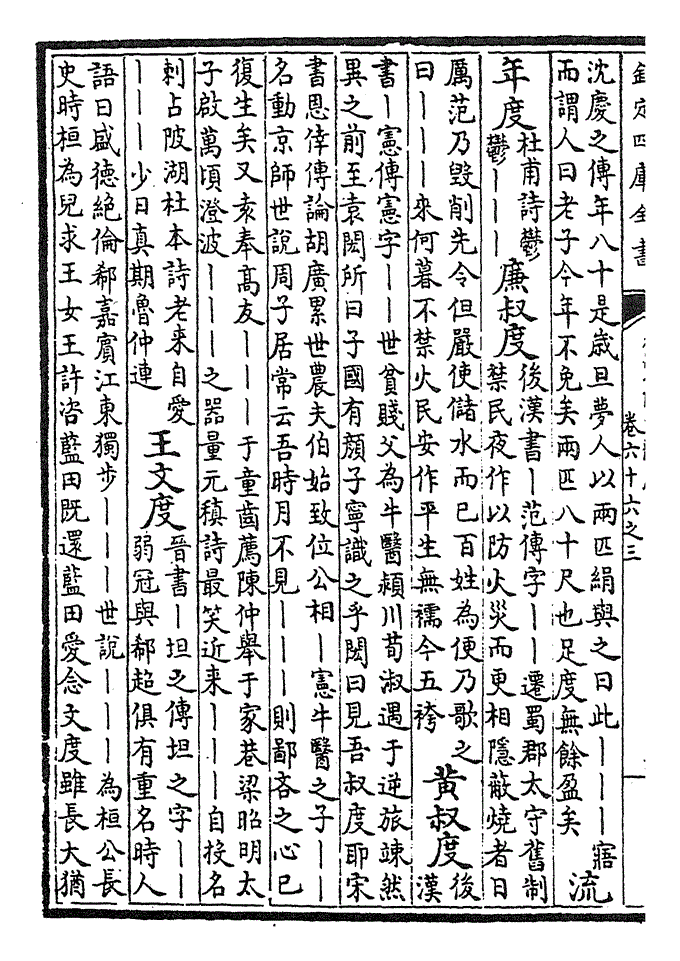 欽定四庫全書
卷六十六之三
沈慶之傳年八十是歲旦夢人以兩匹絹與之曰此———寤
而謂人曰老子今年不免矣兩匹八十尺也足度無餘盈矣
流
年度
杜甫詩鬱
鬱———
廉叔度
後漢書—范傳字——遷蜀郡太守舊制
禁民夜作以防火災而更相隱蔽燒者日
厲范乃毀削先令但嚴使儲水而已百姓為便乃歌之
曰———來何暮不禁火民安作平生無襦今五袴
黄叔度
後
漢
書—憲傳憲字——世貧賤父為牛醫潁川荀淑遇于逆旅竦然
異之前至袁閎所曰子國有顔子寧識之乎閎曰見吾叔度耶宋
書恩倖傳論胡廣累世農夫伯始致位公相—憲牛醫之子——
名動京師世說周子居常云吾時月不見———則鄙吝之心已
復生矣又袁奉髙友———于童齒薦陳仲舉于家巷梁昭明太
子啟萬頃澄波———之器量元稹詩最笑近来———自投名
刺占陂湖杜本詩老來自愛
———少日真期魯仲連
王文度
晉書—坦之傳坦之字——
弱冠與郗超俱有重名時人
語曰盛德絶倫郗嘉賓江東獨步———世說———為桓公長
史時桓為兒求王女王許咨藍田既還藍田愛念文度雖長大猶